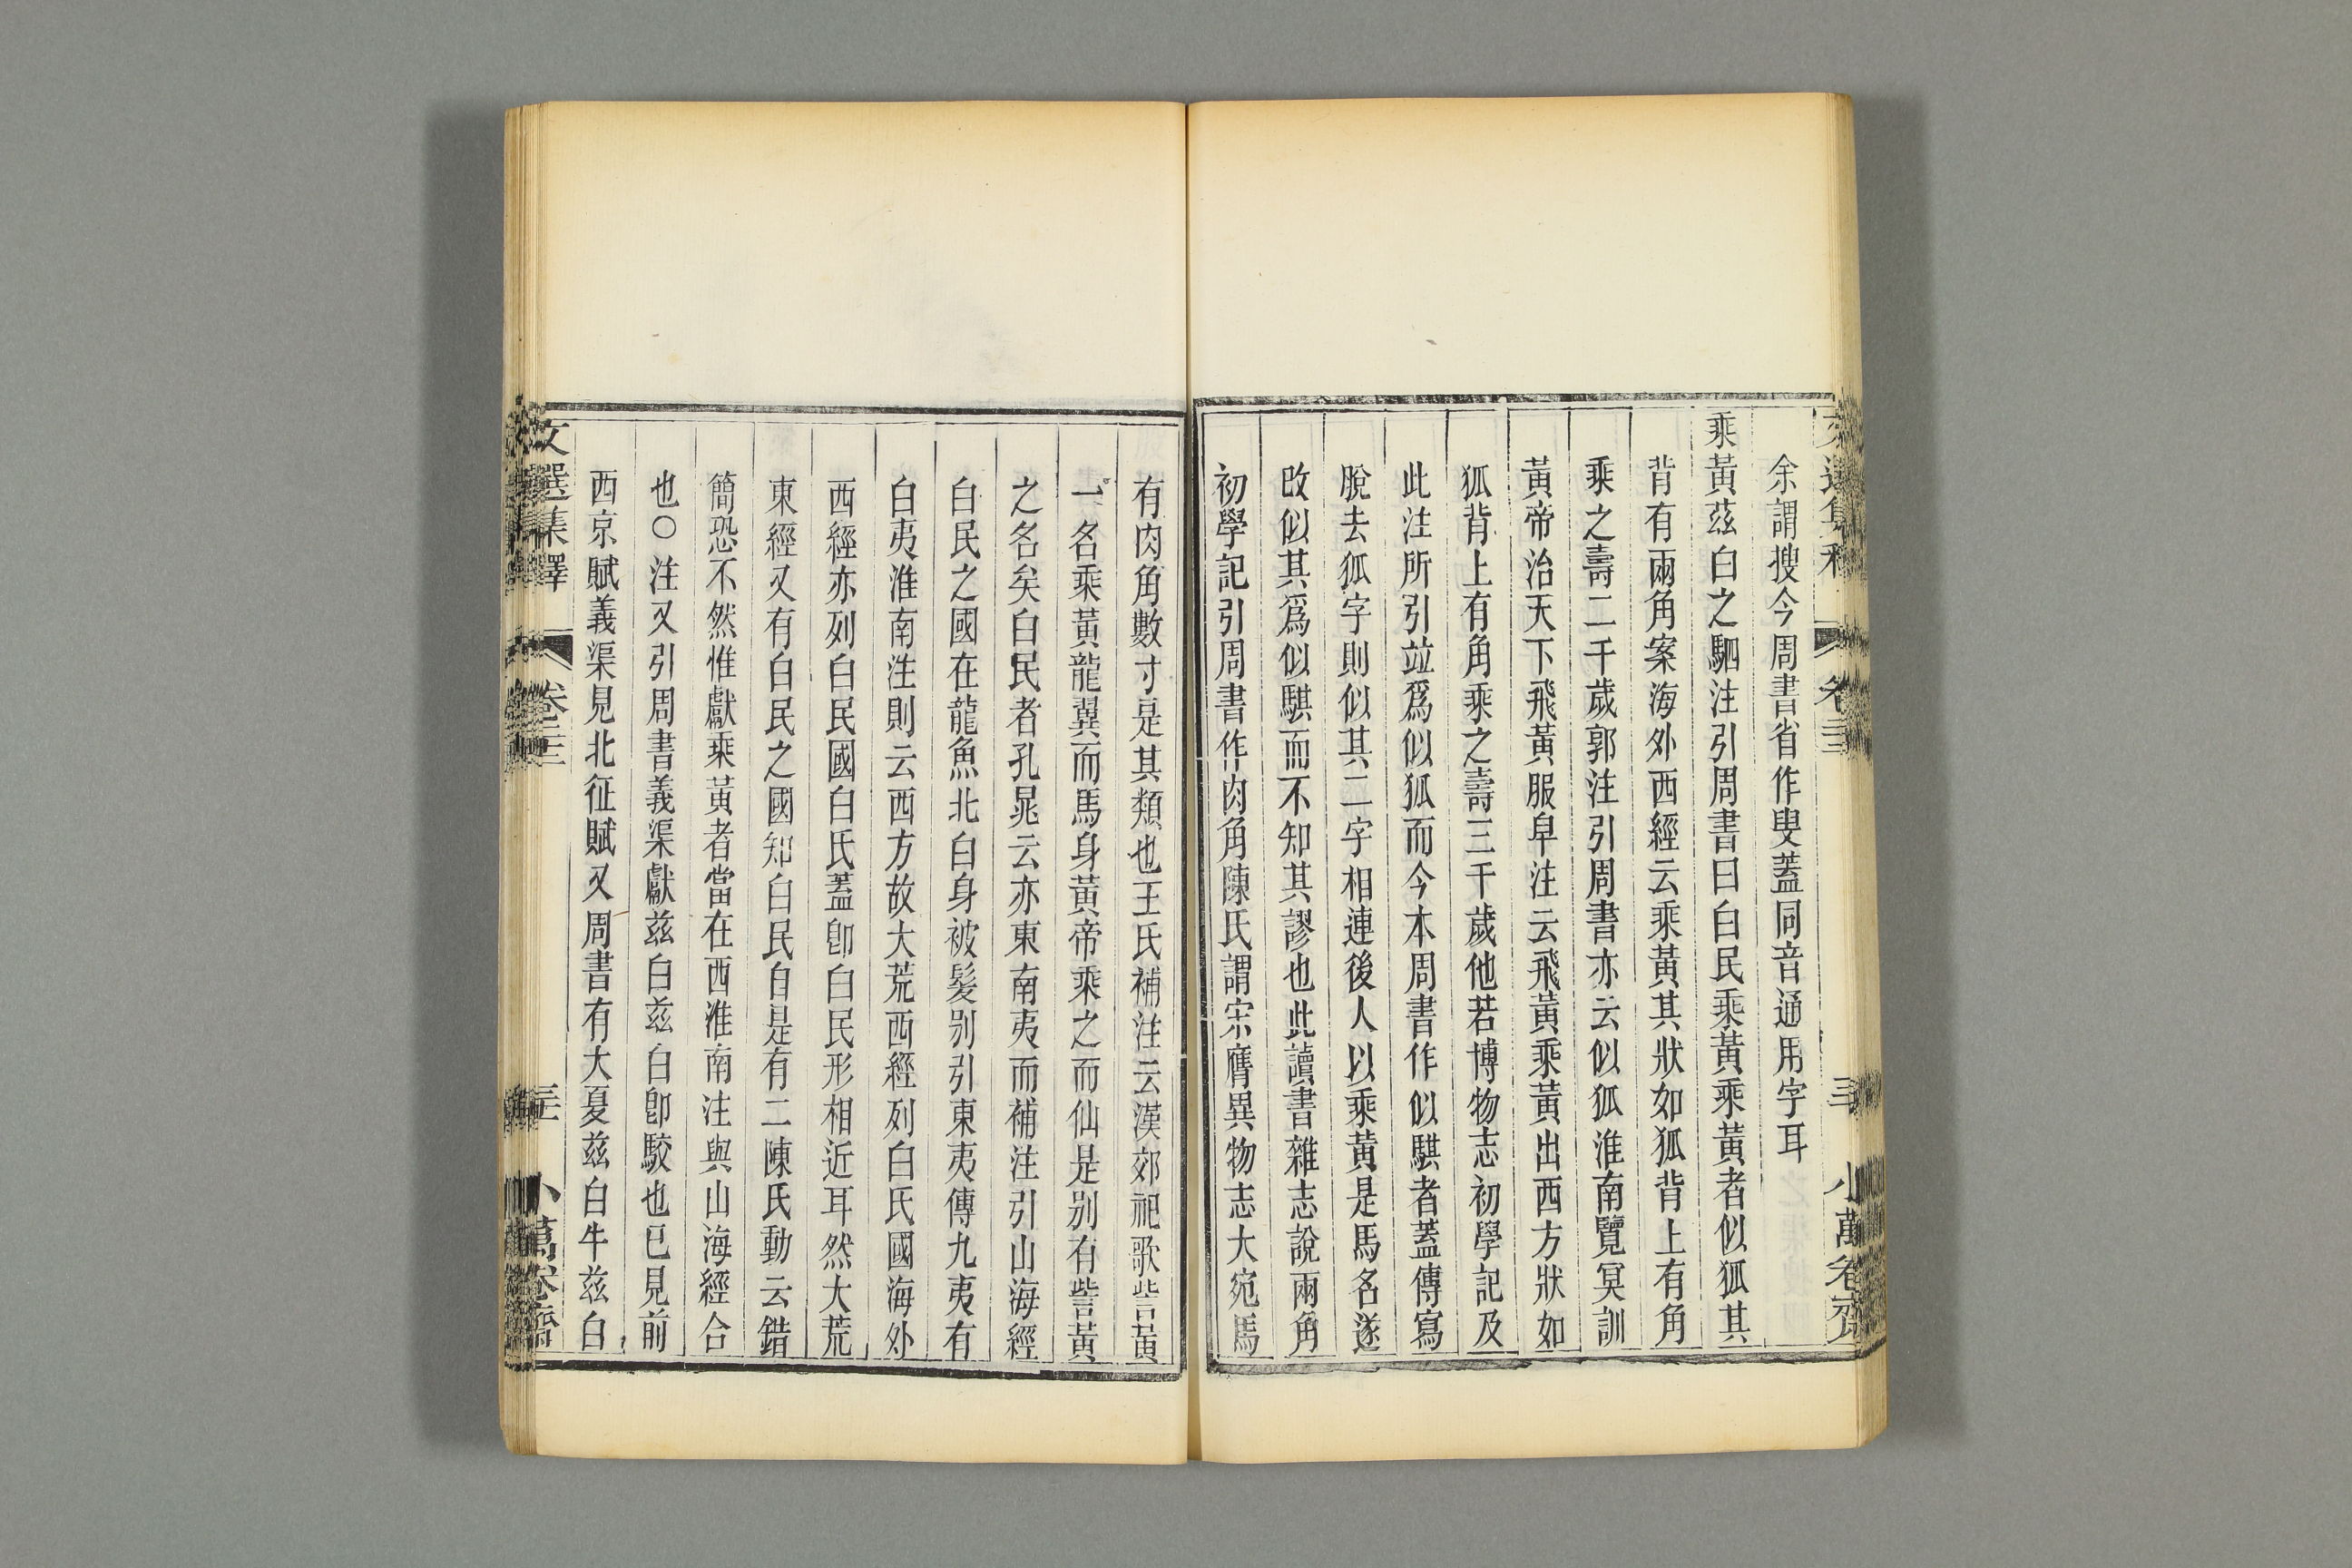 余謂搜今周書省作叟蓋同音通用字耳
乘黃茲白之駟注引周書曰白民乘黃乘黃者似狐其
背有兩角案海外西經云乘黃其狀如狐背上有角
乘之壽二千歲郭注引周書亦云似狐淮南覽冥訓
黃帝治天下飛黃服皁注云飛黃乘黃出西方狀如
狐背上有角乘之壽三千歲他若博物志初學記及
此注所引竝爲似狐而今本周書作似騏者蓋傳寫
脫去狐字則似其二字相連後人以乘黃是馬名遂
改似其爲似騏而不知其謬也此讀書雜志說兩角
初學記引周書作肉角陳氏謂宋膺異物志大宛馬
有肉角數寸是其類也王氏補注云漢郊祀歌訾黃
一名乘黃龍翼而馬身黃帝乘之而仙是别有訾黃
之名矣白民者孔晁云亦東南夷而補注引山海經
白民之國在龍魚北白身被髮别引東夷傳九夷有
白夷淮南注則云西方故大荒西經列白氏國海外
西經亦列白民國白氏蓋卽白民形相近耳然大荒
東經又有白民之國知白民自是有二陳氏動云錯
簡恐不然惟獻乘黃者當在西淮南注與山海經合
也○注又引周書義渠獻茲白茲白卽駮也已見前
西京賦義渠見北征賦又周書有大夏茲白牛茲白
文選集釋
卷二三
三一
小萬卷齋